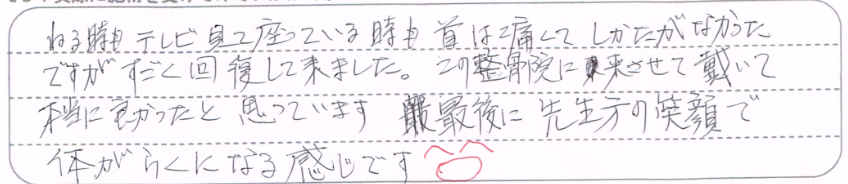 ねる時も テレビ見て座っている時も 首は痛くて しかたがなかった
ですが すごく回復して来ました。この整骨院に来させて戴いて
本当に良かったと思っています 最後に 先生方の笑顔で
体がらくになる感じです